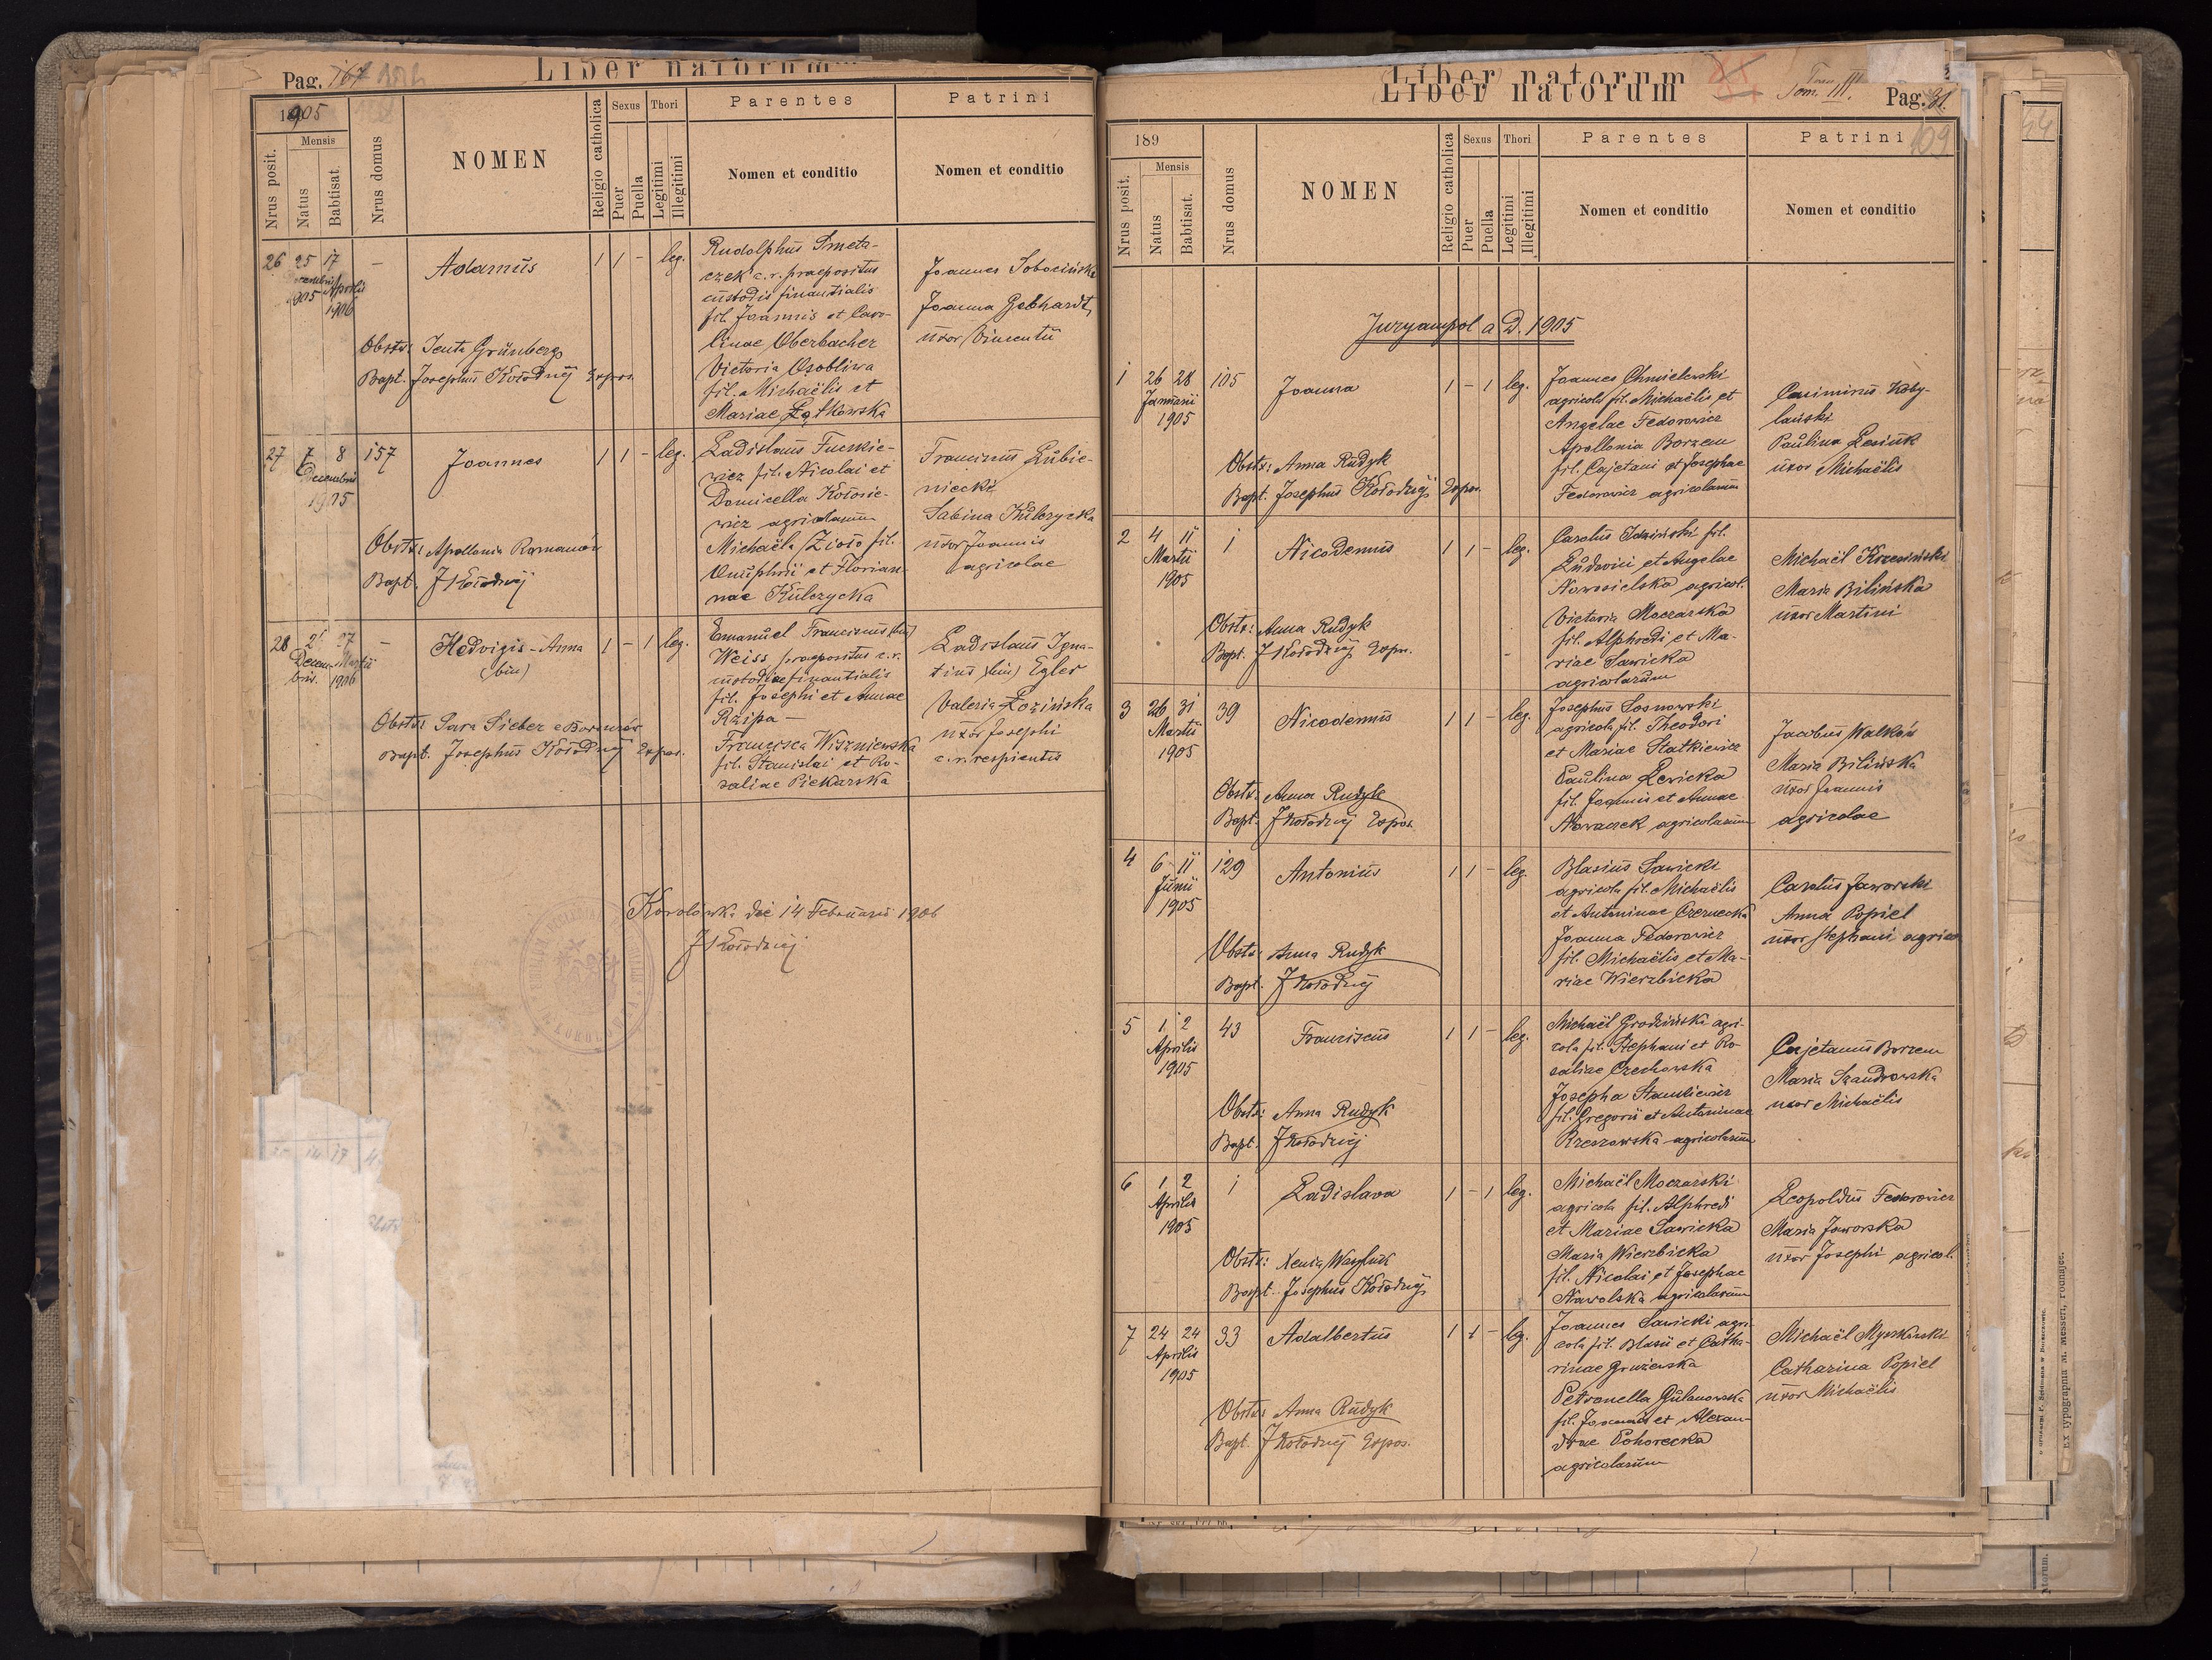 Pag. 167
Liber natorum
1905
Nrus posit.
Mensis
Natus
Babtisat.
Nrus domus
NOMEN
Religio catholica
Sexus
Puer
Puella
Thori
Legitimi
Illegitimi
Parentes
Nomen et conditio
Patrini
Nomen et conditio
26 25 17 — Adamus 1 1 - leg.
1905 Aprilis
1906
Rudolphus Smeta-
czek c. r. praepositus
custodis finantialis
fil. Joannis et Caro-
linae Oberbacher
Victoria Osobliwa
fil. Michaëlis et
Mariae Łątkowska
Joannes Sobociński
Joanna Gebhardt,
uxor Vincentii
Obstx: Jenta Grünberg
Bapt. Josephus Kołodziej Expos.
27 7 8 157 Joannes 1 1 - leg.
Decembris
1905
Ladislaus
wicz fil. Nicolai et
Domicella
wicz agricolarum
Michaëla Zioło fil.
Onuphrii et Florian-
nae Kulczycka
Franciscus Łubie-
niecki
Sabina Kulczycka
uxor Joannis
agricolae
Obstx: Apollonia Romanów
Bapt. J Kołodziej
28 21 27 — Hedvigis-Anna 1 - 1 leg.
Decem- Martii
bris. 1906
(bin)
Emanuel Franciscus (bin)
Weiss praepositus c. r.
custodiae finantialis
fil. Josephi et Annae
Rzipa —
Francisca Wiszniewska
fil. Stanislai et Ro-
saliae Piekarska
Ladislaus Igna-
tius (bin) Egler
Valeria Łozińska
uxor Josephi
c. r. respicientis
Obstx: Sara Sieber e Borszczów
Bapt. Josephus Kołodziej Expos.
Korolówka die 14 Februarii 1906
J Kołodziej
Liber natorum
Tom. III.
Pag. 31.
109
189
Nrus posit.
Mensis
Natus
Babtisat.
Nrus domus
NOMEN
Religio catholica
Sexus
Puer
Puella
Thori
Legitimi
Illegitimi
Parentes
Nomen et conditio
Patrini
Nomen et conditio
Juryampol a D. 1905
1 26 28 105 Joanna 1 - 1 leg.
Januarii
1905
Joannes Chmielewski
agricola fil. Michaëlis et
Angelae Fedorowicz
Apollonia Borzem
fil. Cajetani et Josephae
Fedorowicz agricolarum
Casimirus Koby-
lański
Paulina Lesiuk
uxor Michaëlis
Obstx: Anna Rudyk
Bapt. Josephus Kołodziej Expos.
2 4 11 1 Nicodemus 1 1 - leg.
Martii
1905
Carolus Idziński fil.
Ludovici et Angelae
Nowosielska agricol.
Victoria Moczarska
fil. Alphredi et Ma-
riae Sawicka
agricolarum
Michaël Krzesiński
Maria Bilińska
uxor Martini
Obstx: Anna Rudyk
Bapt. J Kołodziej Expos.
3 26 31 39 Nicodemus 1 1 - leg.
Martii
1905
Josephus Sosnowski
agricola fil. Theodori
et Mariae Statkiewicz
Paulina Lewicka
fil. Joannis et Annae
Nowaczek agricolarum
Jacobus Walków
Maria Bilińska
uxor Joannis
agricolae
Obstx: Anna Rudyk
Bapt. J Kołodziej Expos.
4 6 11 129 Antonius 1 1 - leg.
Junii
1905
Blasius Sawicki
agricola fil. Michaëlis
et Antoninae Czernecka
Joanna Fedorowicz
fil. Michaëlis et Ma-
riae Wierzbicka
Carolus Jaworski
Anna Popiel
uxor Stephani agricol.
Obstx: Anna Rudyk
Bapt. J Kołodziej
5 1 2 43 Franciscus 1 1 - leg.
Aprilis
1905
Michaël Grodziński agri-
cola fil. Stephani et Ro-
saliae Czechowska
Josepha Stankiewicz
fil. Gregorii et Antoninae
Rzeszowska agricolarum
Cajetanus Borzem
Maria Szandrowska
uxor Michaëlis
Obstx: Anna Rudyk
Bapt. J Kołodziej
6 1 2 1 Ladislava 1 - 1 leg.
Aprilis
1905
Michaël Moczarski
agricola fil. Alphredi
et Mariae Sawicka
Maria Wierzbicka
fil. Nicolai et Josephae
Nawolska agricolarum
Leopoldus Fedorowicz
Maria Jaworska
uxor Josephi agricol.
Obstx: Xenia Wasyluk
Bapt. Josephus Kołodziej
7 24 24 33 Adalbertus 1 1 - leg.
Aprilis
1905
Joannes Sawicki agri-
cola fil. Blasii et Catha-
rinae Gruzewska
Petronella Gulanowska
fil. Joannis et Alexan-
drae Pohorecka
agricolarum
Michaël Myszkowski
Catharina Popiel
uxor Michaëlis
Obstx: Anna Rudyk
Bapt. J Kołodziej Expos.